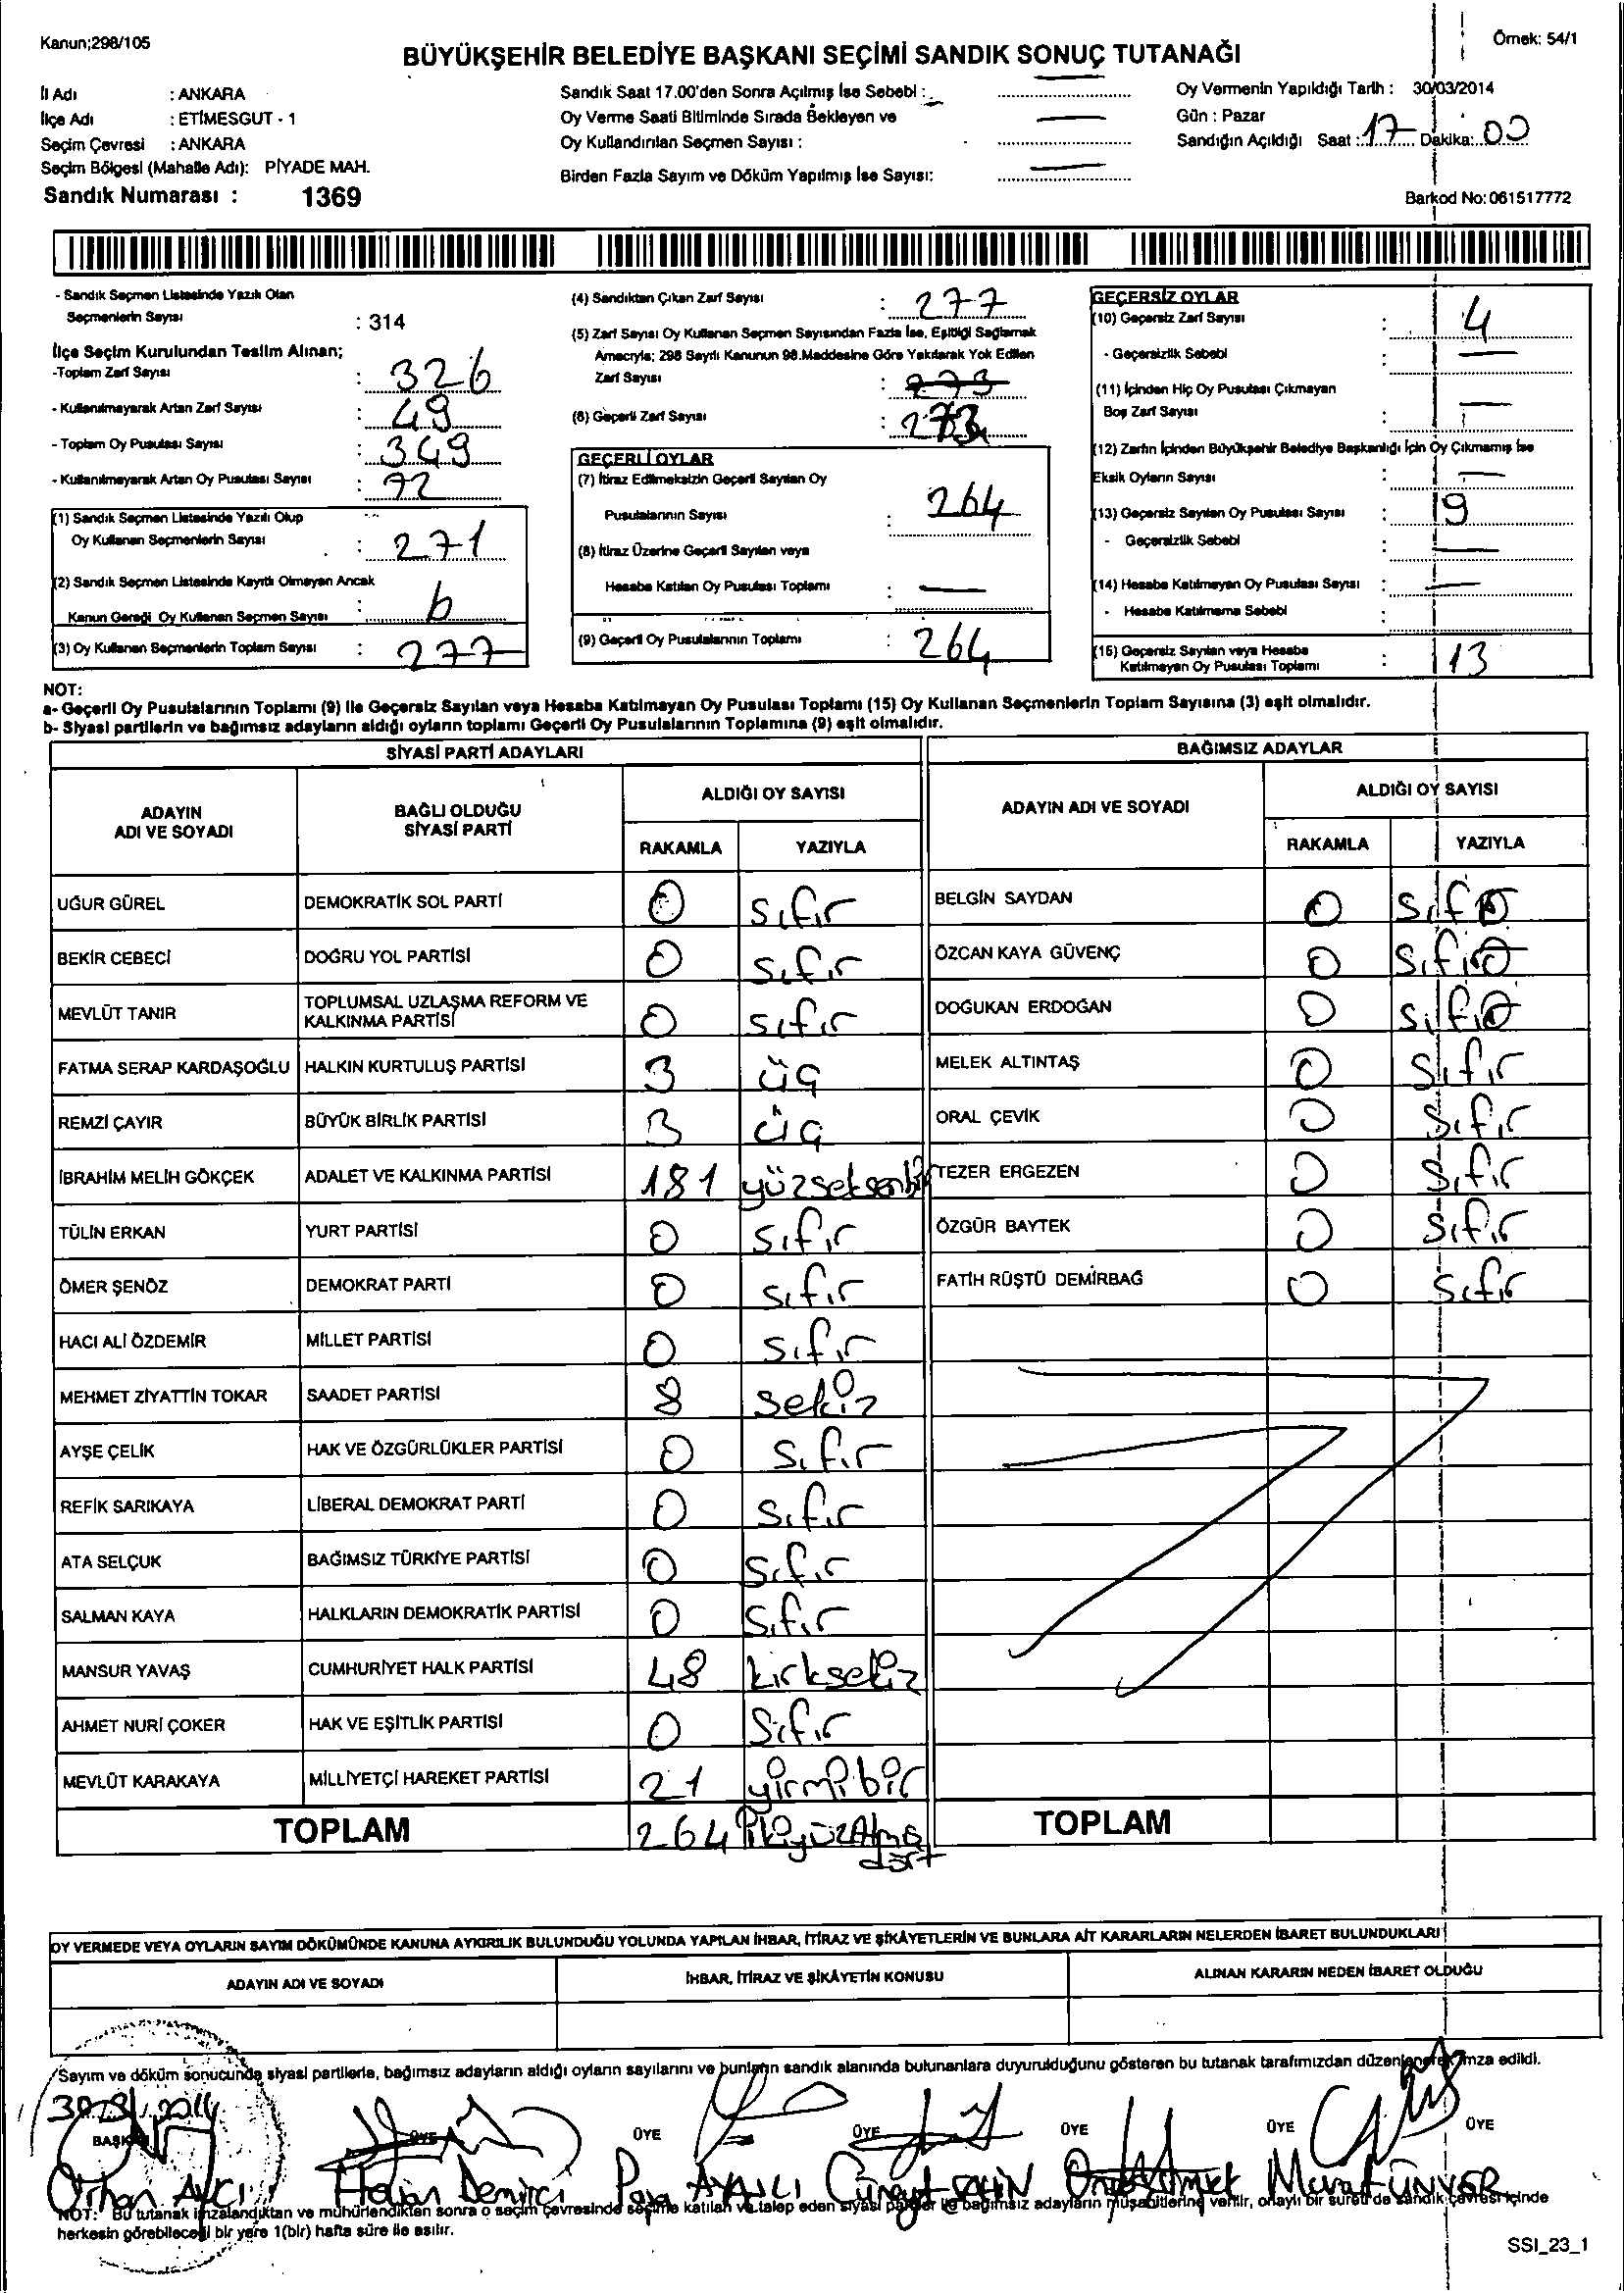 Kanun;298/105
Örnek: 54/1
BÜYÜKŞEHİR BELEDİYE BAŞKANI SEÇİMİ SANDIK SONUÇ TUTANAĞI
İl Adı : ANKARA
İlçe Adı : ETİMESGUT - 1
Seçim Çevresi : ANKARA
Seçim Bölgesi (Mahalle Adı): PİYADE MAH.
Sandık Numarası : 1369
Sandık Saat 17.00'den Sonra Açılmış İse Sebebi :
Oy Verme Saati Bitiminde Sırada Bekleyen ve
Oy Kullandırılan Seçmen Sayısı :
Birden Fazla Sayım ve Döküm Yapılmış İse Sayısı:
Oy Vermenin Yapıldığı Tarih : 30/03/2014
Gün : Pazar
Sandığın Açıldığı Saat : 17 Dakika: 00
Barkod No: 061517772
- Sandık Seçmen Listesinde Yazılı Olan
Seçmenlerin Sayısı : 314
İlçe Seçim Kurulundan Teslim Alınan;
-Toplam Zarf Sayısı : 326
- Kullanılmayarak Artan Zarf Sayısı : 49
- Toplam Oy Pusulası Sayısı : 349
- Kullanılmayarak Artan Oy Pusulası Sayısı : 72
(1) Sandık Seçmen Listesinde Yazılı Olup
Oy Kullanan Seçmenlerin Sayısı : 271
(2) Sandık Seçmen Listesinde Kayıtlı Olmayan Ancak
Kanun Gereği Oy Kullanan Seçmen Sayısı : 6
(3) Oy Kullanan Seçmenlerin Toplam Sayısı : 277
(4) Sandıktan Çıkan Zarf Sayısı : 277
(5) Zarf Sayısı Oy Kullanan Seçmen Sayısından Fazla İse, Eşitliği Sağlamak
Amacıyla; 298 Sayılı Kanunun 98.Maddesine Göre Yakılarak Yok Edilen
Zarf Sayısı : 273
(6) Geçerli Zarf Sayısı : 273
GEÇERLİ OYLAR
(7) İtiraz Edilmeksizin Geçerli Sayılan Oy
Pusulalarının Sayısı : 264
(8) İtiraz Üzerine Geçerli Sayılan veya
Hesaba Katılan Oy Pusulası Toplamı : —
(9) Geçerli Oy Pusulalarının Toplamı : 264
GEÇERSİZ OYLAR
(10) Geçersiz Zarf Sayısı : 4
- Geçersizlik Sebebi : —
(11) İçinden Hiç Oy Pusulası Çıkmayan
Boş Zarf Sayısı : —
(12) Zarfın İçinden Büyükşehir Belediye Başkanlığı İçin Oy Çıkmamış İse
Eksik Oyların Sayısı : —
(13) Geçersiz Sayılan Oy Pusulası Sayısı : 9
- Geçersizlik Sebebi : —
(14) Hesaba Katılmayan Oy Pusulası Sayısı : —
- Hesaba Katılmama Sebebi :
(15) Geçersiz Sayılan veya Hesaba
Katılmayan Oy Pusulası Toplamı : 13
NOT:
a- Geçerli Oy Pusulalarının Toplamı (9) İle Geçersiz Sayılan veya Hesaba Katılmayan Oy Pusulası Toplamı (15) Oy Kullanan Seçmenlerin Toplam Sayısına (3) eşit olmalıdır.
b- Siyasi partilerin ve bağımsız adayların aldığı oyların toplamı Geçerli Oy Pusulalarının Toplamına (9) eşit olmalıdır.
SİYASİ PARTİ ADAYLARI
ADAYIN ADI VE SOYADI
BAĞLI OLDUĞU SİYASİ PARTİ
ALDIĞI OY SAYISI
RAKAMLA YAZIYLA
UĞUR GÜREL DEMOKRATİK SOL PARTİ 0 sıfır
BEKİR CEBECİ DOĞRU YOL PARTİSİ 0 sıfır
MEVLÜT TANIR TOPLUMSAL UZLAŞMA REFORM VE KALKINMA PARTİSİ 0 sıfır
FATMA SERAP KARDAŞOĞLU HALKIN KURTULUŞ PARTİSİ 3 üç
REMZİ ÇAYIR BÜYÜK BİRLİK PARTİSİ 3 üç
İBRAHİM MELİH GÖKÇEK ADALET VE KALKINMA PARTİSİ 181 yüzseksenbir
TÜLİN ERKAN YURT PARTİSİ 0 sıfır
ÖMER ŞENÖZ DEMOKRAT PARTİ 0 sıfır
HACI ALİ ÖZDEMİR MİLLET PARTİSİ 0 sıfır
MEHMET ZİYATTİN TOKAR SAADET PARTİSİ 8 sekiz
AYŞE ÇELİK HAK VE ÖZGÜRLÜKLER PARTİSİ 0 sıfır
REFİK SARIKAYA LİBERAL DEMOKRAT PARTİ 0 sıfır
ATA SELÇUK BAĞIMSIZ TÜRKİYE PARTİSİ 0 sıfır
SALMAN KAYA HALKLARIN DEMOKRATİK PARTİSİ 0 sıfır
MANSUR YAVAŞ CUMHURİYET HALK PARTİSİ 48 kırksekiz
AHMET NURİ ÇOKER HAK VE EŞİTLİK PARTİSİ 0 sıfır
MEVLÜT KARAKAYA MİLLİYETÇİ HAREKET PARTİSİ 21 yirmibir
TOPLAM 264 ikiyüzAtmış dört
BAĞIMSIZ ADAYLAR
ADAYIN ADI VE SOYADI
ALDIĞI OY SAYISI
RAKAMLA YAZIYLA
BELGİN SAYDAN 0 sıfır
ÖZCAN KAYA GÜVENÇ 0 sıfır
DOĞUKAN ERDOĞAN 0 sıfır
MELEK ALTINTAŞ 0 sıfır
ORAL ÇEVİK 0 sıfır
TEZER ERGEZEN 0 sıfır
ÖZGÜR BAYTEK 0 sıfır
FATİH RÜŞTÜ DEMİRBAĞ 0 sıfır
TOPLAM
OY VERMEDE VEYA OYLARIN SAYIM DÖKÜMÜNDE KANUNA AYKIRILIK BULUNDUĞU YOLUNDA YAPILAN İHBAR, İTİRAZ VE ŞİKÂYETLERİN VE BUNLARA AİT KARARLARIN NELERDEN İBARET BULUNDUKLARI
ADAYIN ADI VE SOYADI
İHBAR, İTİRAZ VE ŞİKÂYETİN KONUSU
ALINAN KARARIN NEDEN İBARET OLDUĞU
Sayım ve döküm sonucunda siyasi partilerle, bağımsız adayların aldığı oyların sayılarını ve bunların sandık alanında bulunanlara duyurulduğunu gösteren bu tutanak tarafımızdan düzenlenerek imza edildi.
30/3/2014
BAŞKAN ÜYE ÜYE ÜYE ÜYE ÜYE ÜYE
Orhan AVCI Demirci Cüneyt ŞAHİN Murat ÜNVER
NOT: Bu tutanak imzalandıktan ve mühürlendikten sonra o seçim çevresinde seçime katılan ve talep eden siyasi partiler ile bağımsız adayların müşahitlerine verilir, onaylı bir sureti de sandık çevresi içinde
herkesin görebileceği bir yere 1(bir) hafta süre ile asılır.
SSI_23_1